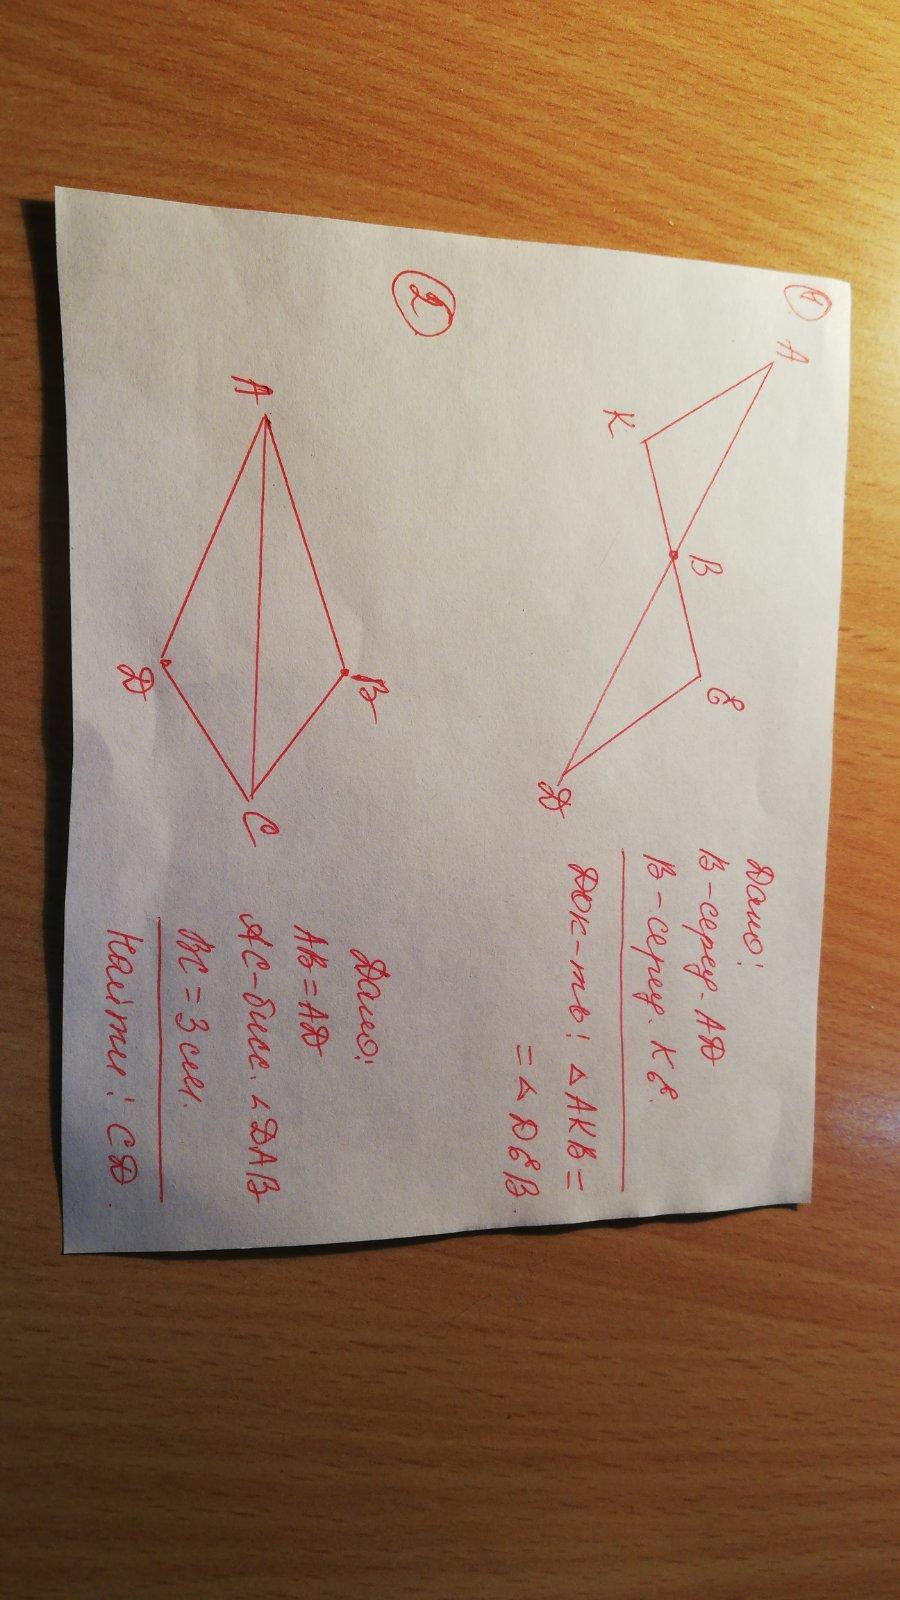 1
A
K
B
E
D
Дано:
B - серед. AD
B - серед. KE.
Док-ть: △AKB =
= △DEB.
2
A
B
D
C
Дано:
AB = AD
AC - бисс. ∠DAB
BC = 3 см.
Найти: CD.